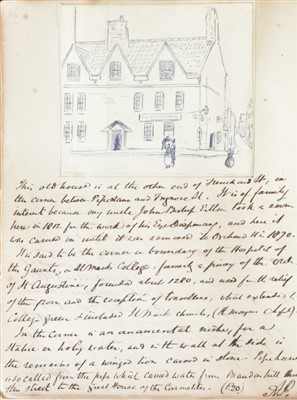 This old house is at the other end of Frenchard St, in
the corner between Pipe Lane and Frogmore St. It is of family
interest because my uncle, John Bishop Estlin took a room
here in 1812 for the work of his Eye Dispensary, and here it
was carried on until it was removed to Orchard St in 1870.
It is said to be the corner or boundary of the Hospital of
the Gaunts, or St Mark's College - formerly a priory of the Order
of St Augustine, founded about 1220, and used for the relief
of the poor and the reception of travellers, which extended to
College Green & included St Mark's church, (the mayor's chapel).
In the corner is an ornamental niche, for a
statue or holy water, and in the wall at the side is
the remains of a winged lion carved in stone. Pipe Lane
was called from the pipe which carried water from Brandon hill thro'
this street to the Great House of the Carmelites.